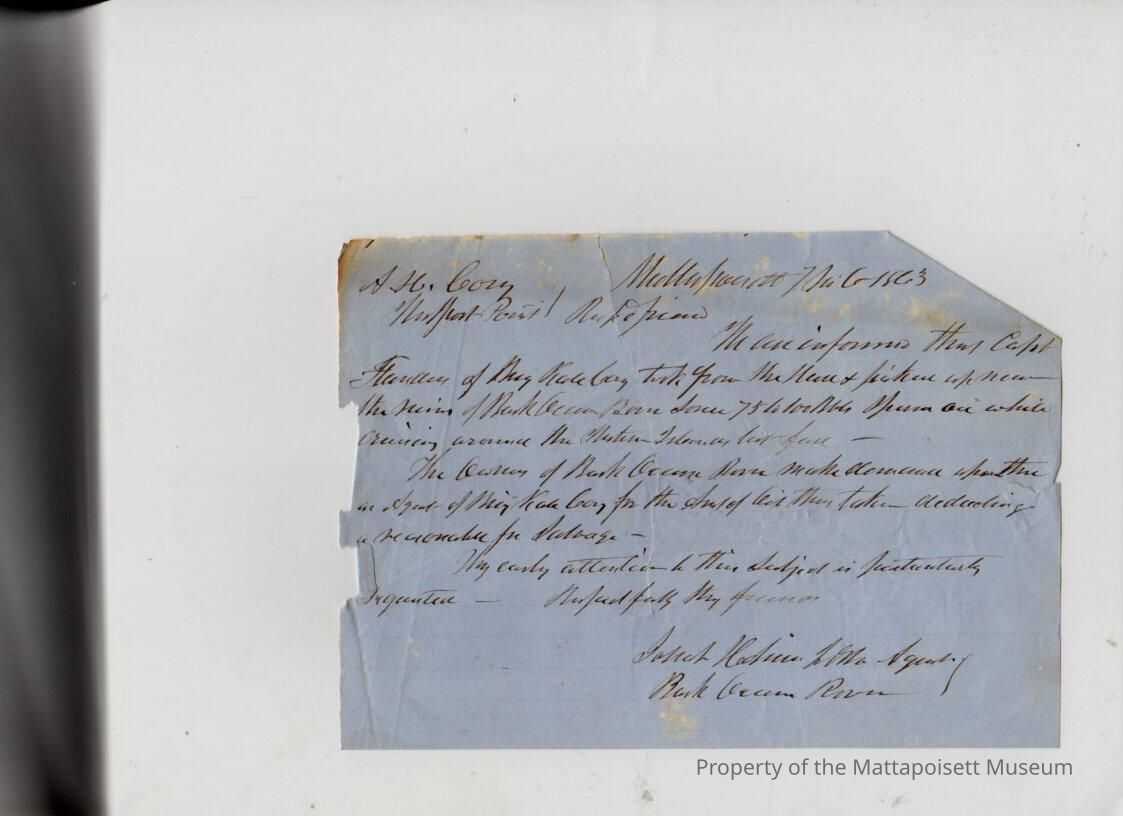 A. H. Cory Mattapoisett 7 Mo 6 1863
Westport Point Resptd friend
We are informed that Capt
Flanders of Brig Kate Cory took from the Sea & picked up near
the ruins of Bark Ocean Rover some 75 to 100 Bbls Sperm oil while
cruising around the Western Islands last fall —
The Owners of Bark Ocean Rover make demand upon thee
as Agent of Brig Kate Cory for the Amt of Oil thus taken deducting
a reasonable for Salvage —
Thy early attention to this Subject is particularly
requested — Respectfully Thy friends
Holmes Agents
Bark Ocean Rover
Property of the Mattapoisett Museum